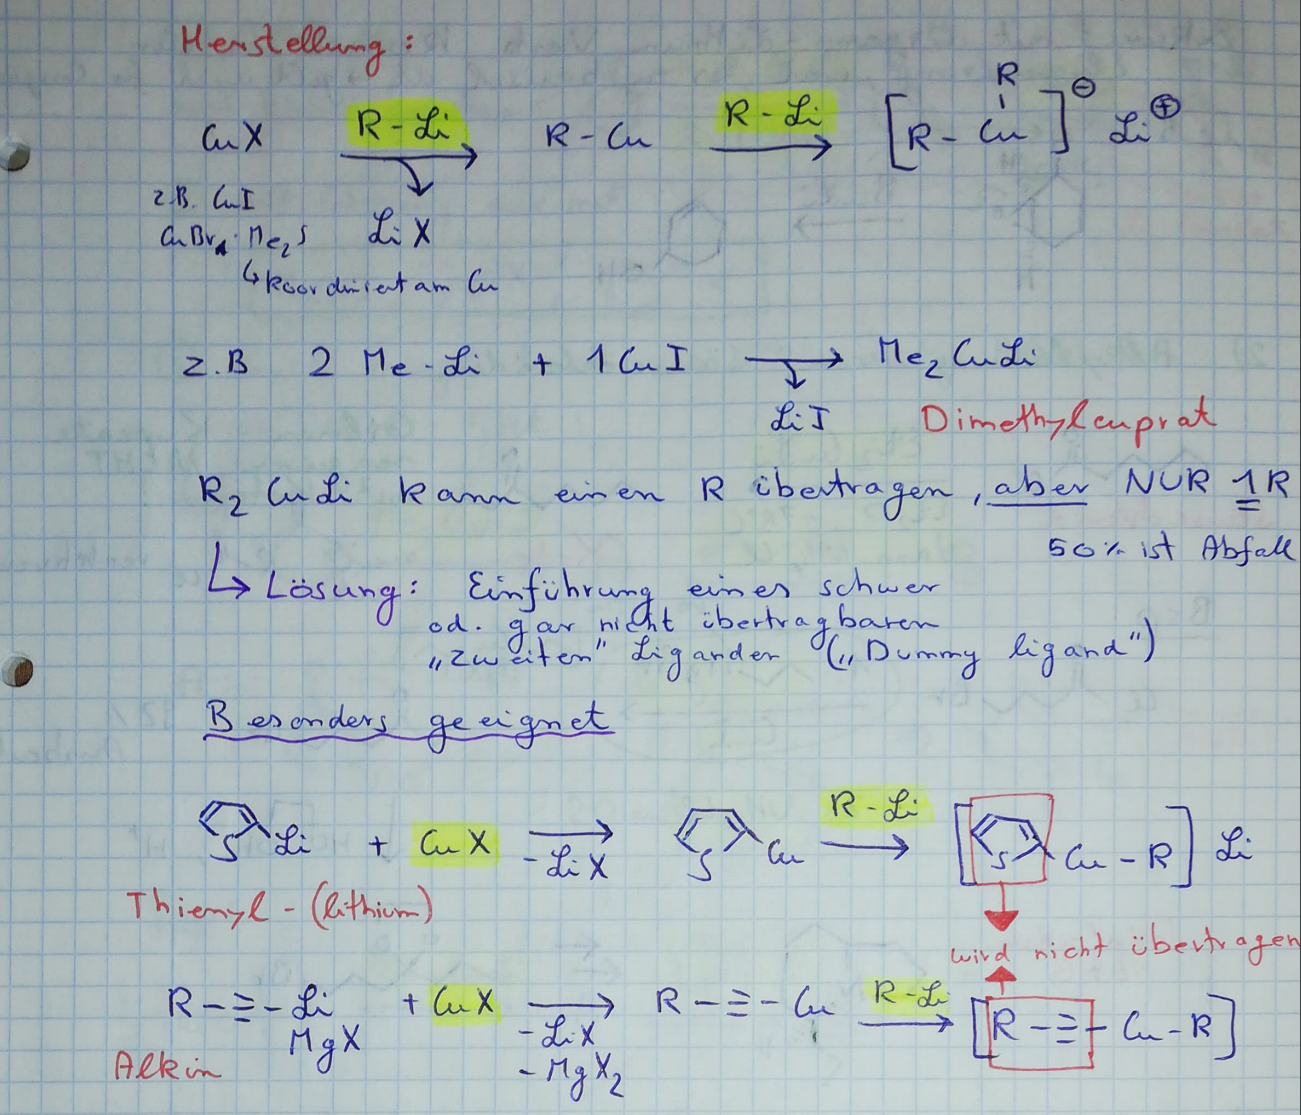 Herstellung:
CuX R-Li R-Cu R-Li [R-Cu-R]⊖ Li⊕
z.B. CuI LiX
CuBr · Me2S
↳ koordiniert am Cu
z.B 2 Me-Li + 1 CuI → Me2CuLi
LiI Dimethylcuprat
R2CuLi kann einen R übertragen, aber NUR 1 R
50% ist Abfall
↳ Lösung: Einführung eines schwer
od. gar nicht übertragbaren
„zweiten" Liganden („Dummy ligand")
Besonders geeignet
S Li + CuX → S Cu R-Li → [S Cu-R] Li
-LiX
Thienyl-(lithium)
wird nicht übertragen
R-≡-Li + CuX → R-≡-Cu R-Li → [R-≡-Cu-R]
MgX -LiX
Alkin -MgX2